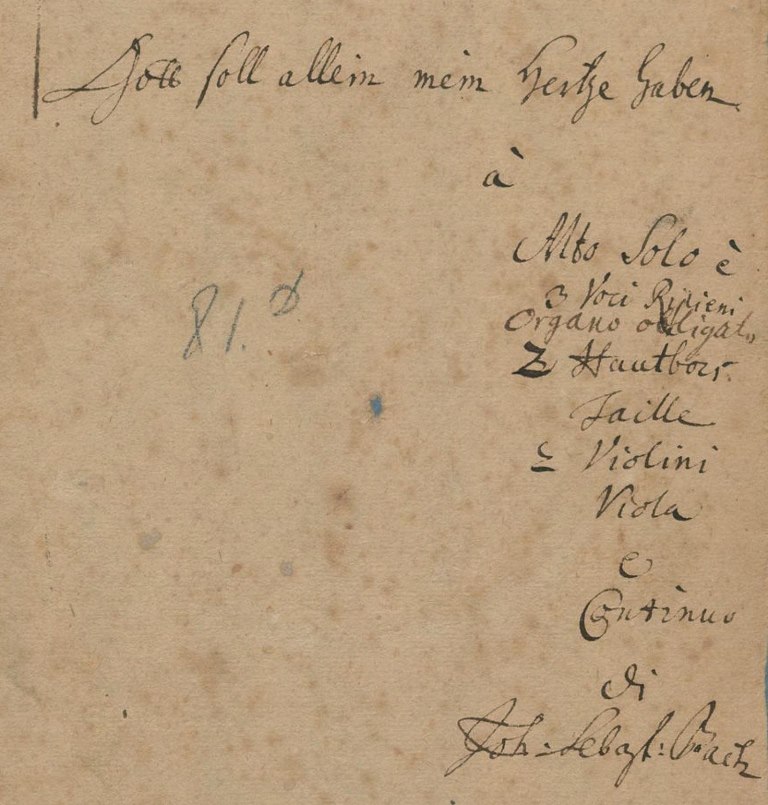 Gott soll allein mein Hertze haben
à
Alto Solo è
3 Voci Ripieni
Organo obligato
2 Hautbois.
Taille
2 Violini
Viola
e
Continuo
di
Joh: Sebast: Bach
81.